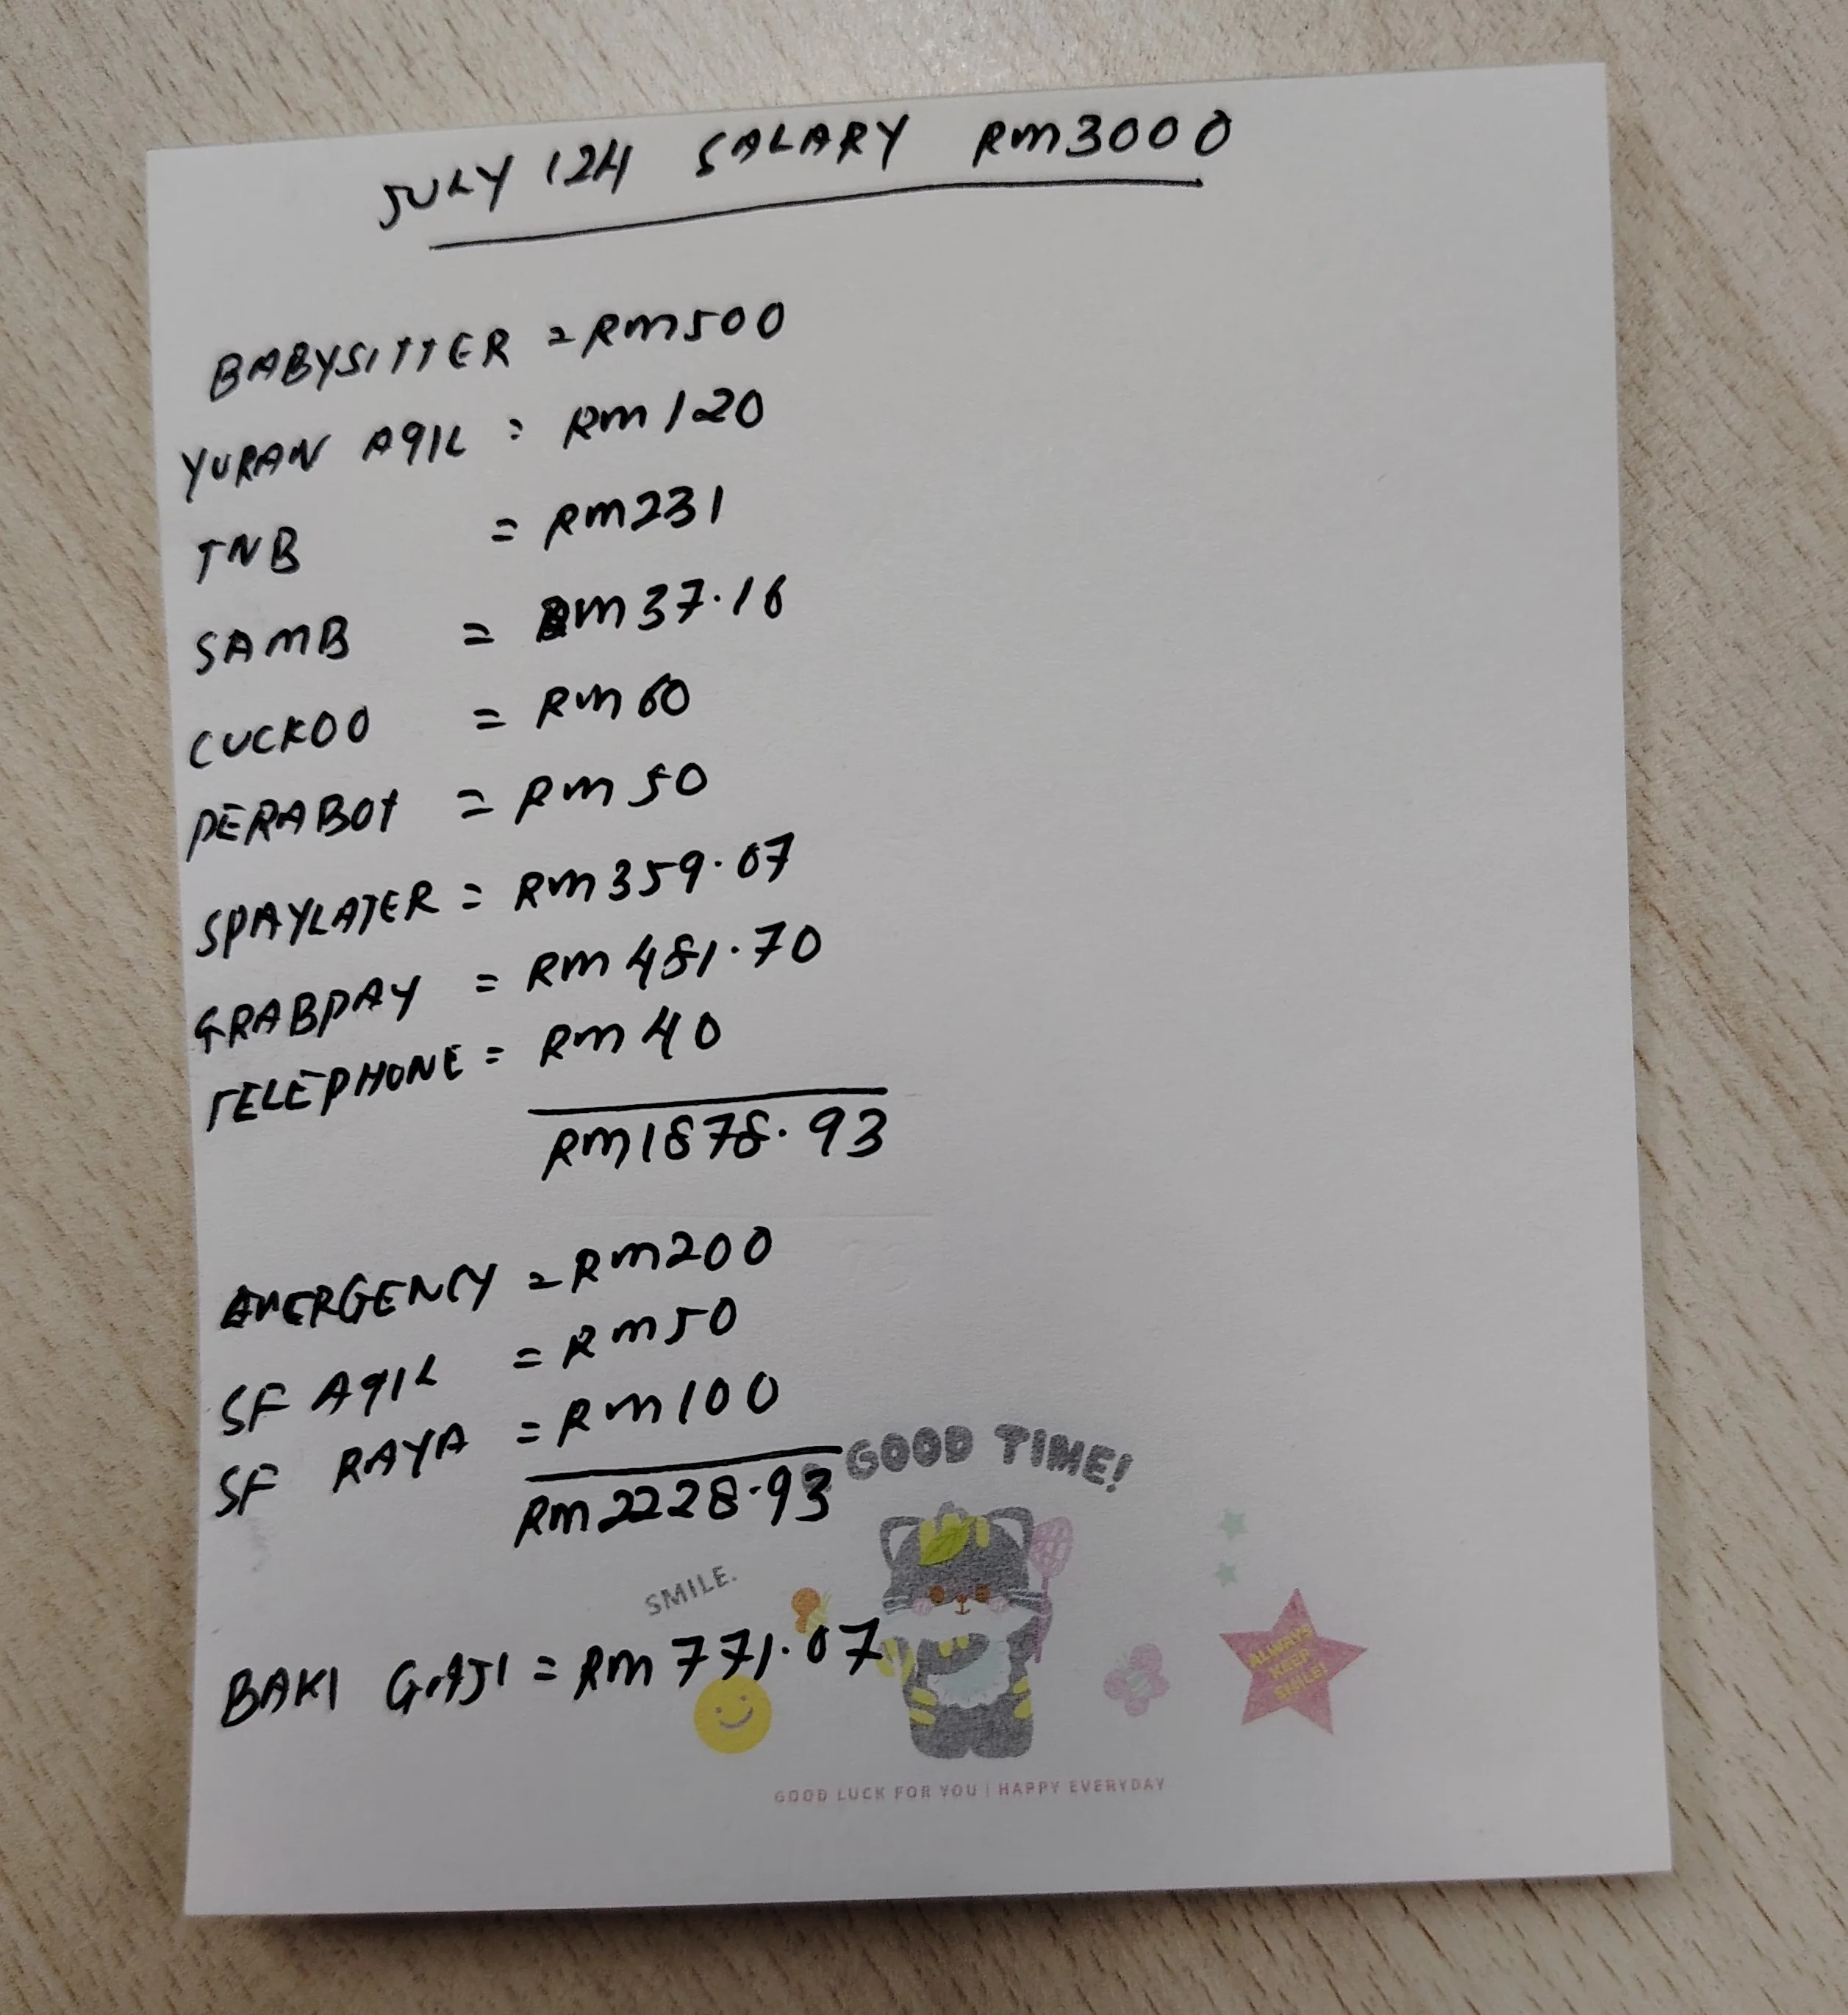 JULY '24 SALARY RM3000
BABYSITTER = RM500
YURAN AQIL = RM120
TNB = RM231
SAMB = RM37.16
CUCKOO = RM60
PERABOT = RM50
SPAYLATER = RM359.07
GRABPAY = RM481.70
TELEPHONE = RM40
RM1878.93
EMERGENCY = RM200
SF AQIL = RM50
SF RAYA = RM100
RM2228.93
GOOD TIME!
SMILE.
BAKI GAJI = RM771.07
ALWAYS
KEEP
SMILE!
GOOD LUCK FOR YOU | HAPPY EVERYDAY